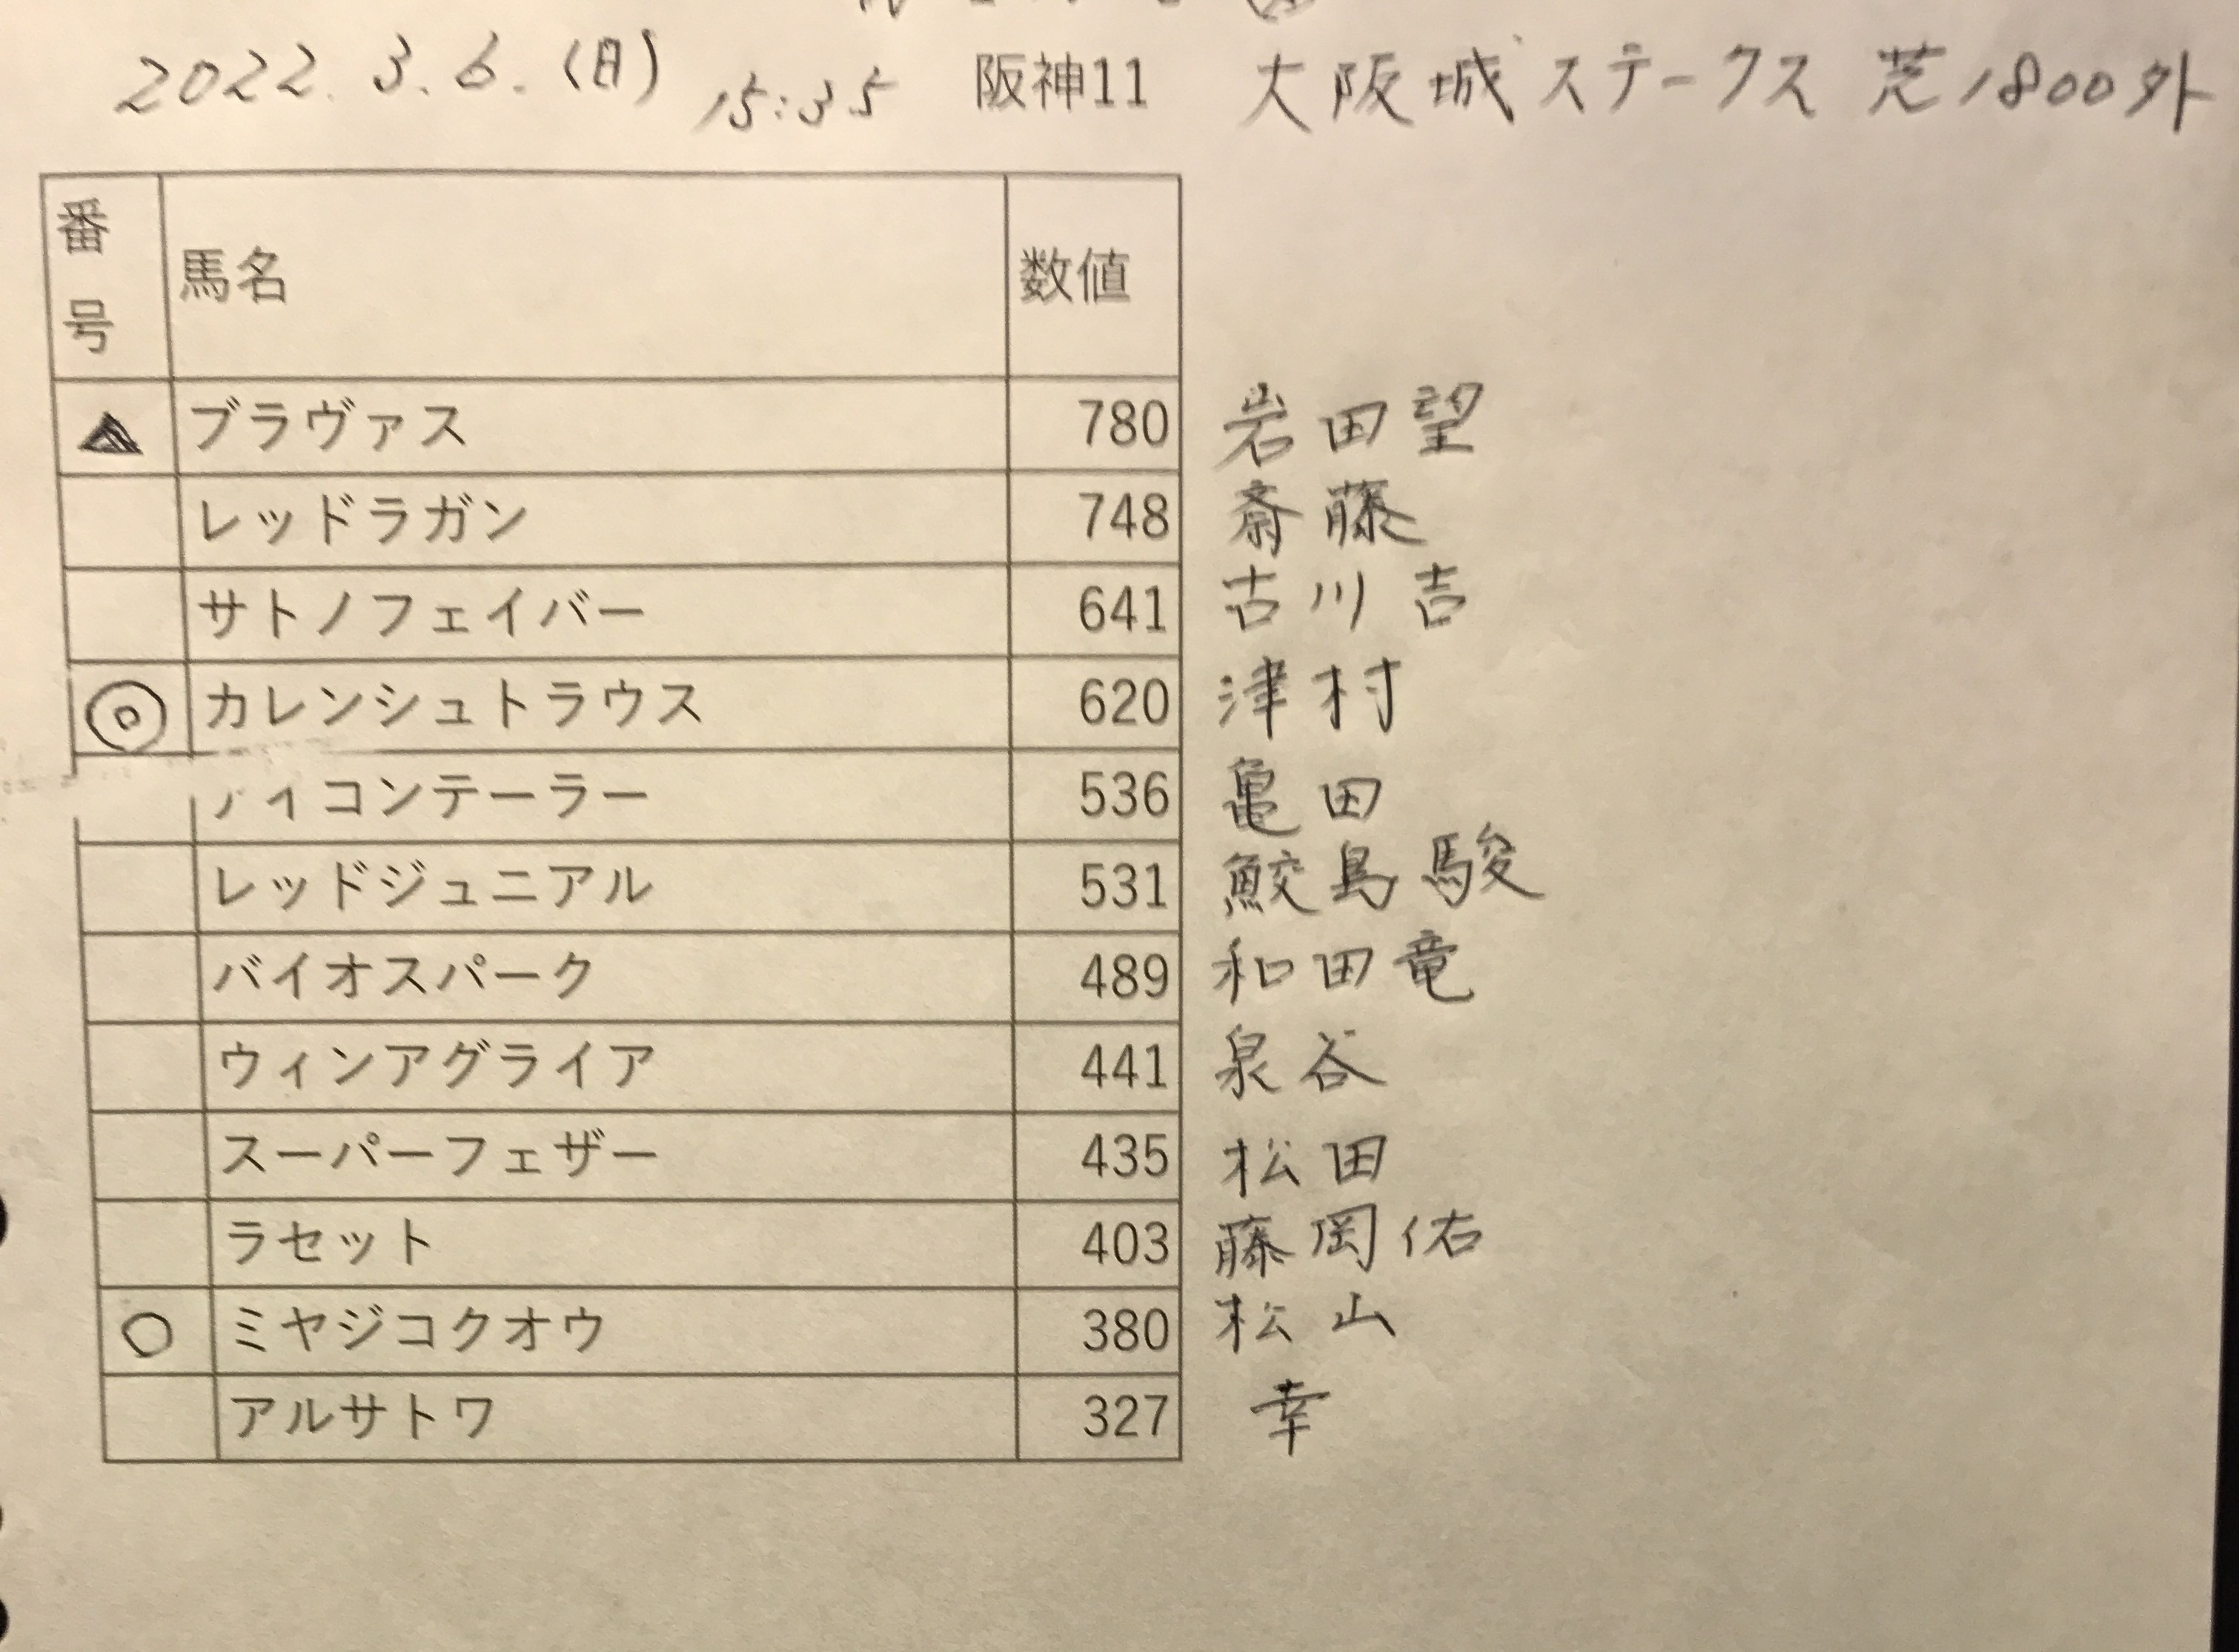 2022.3.6.(日) 15:35 阪神11 大阪城ステークス 芝1800外
番号 馬名 数値
▲ ブラヴァス 780 岩田望
レッドラガン 748 斎藤
サトノフェイバー 641 古川吉
◎ カレンシュトラウス 620 津村
イコンテーラー 536 亀田
レッドジュニアル 531 鮫島駿
バイオスパーク 489 和田竜
ウィンアグライア 441 泉谷
スーパーフェザー 435 松田
ラセット 403 藤岡佑
○ ミヤジコクオウ 380 松山
アルサトワ 327 幸